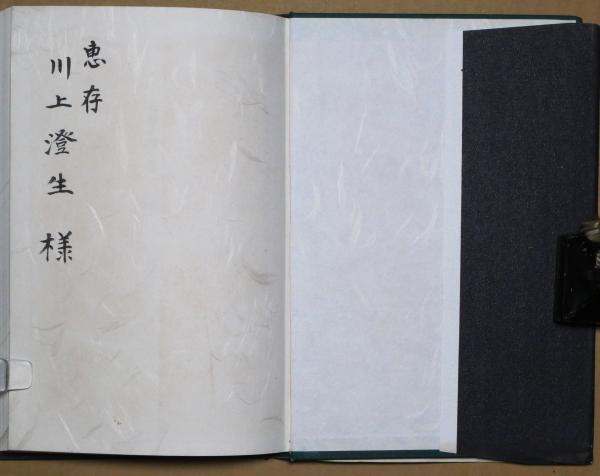 恵存
川上澄生様